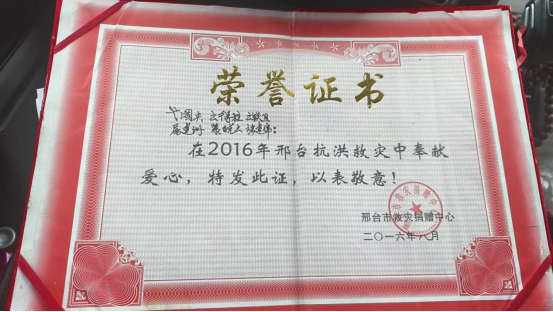 荣誉证书
在2016年邢台抗洪救灾中奉献
爱心，特发此证，以表敬意！
邢台市救灾捐赠中心
二〇一六年八月